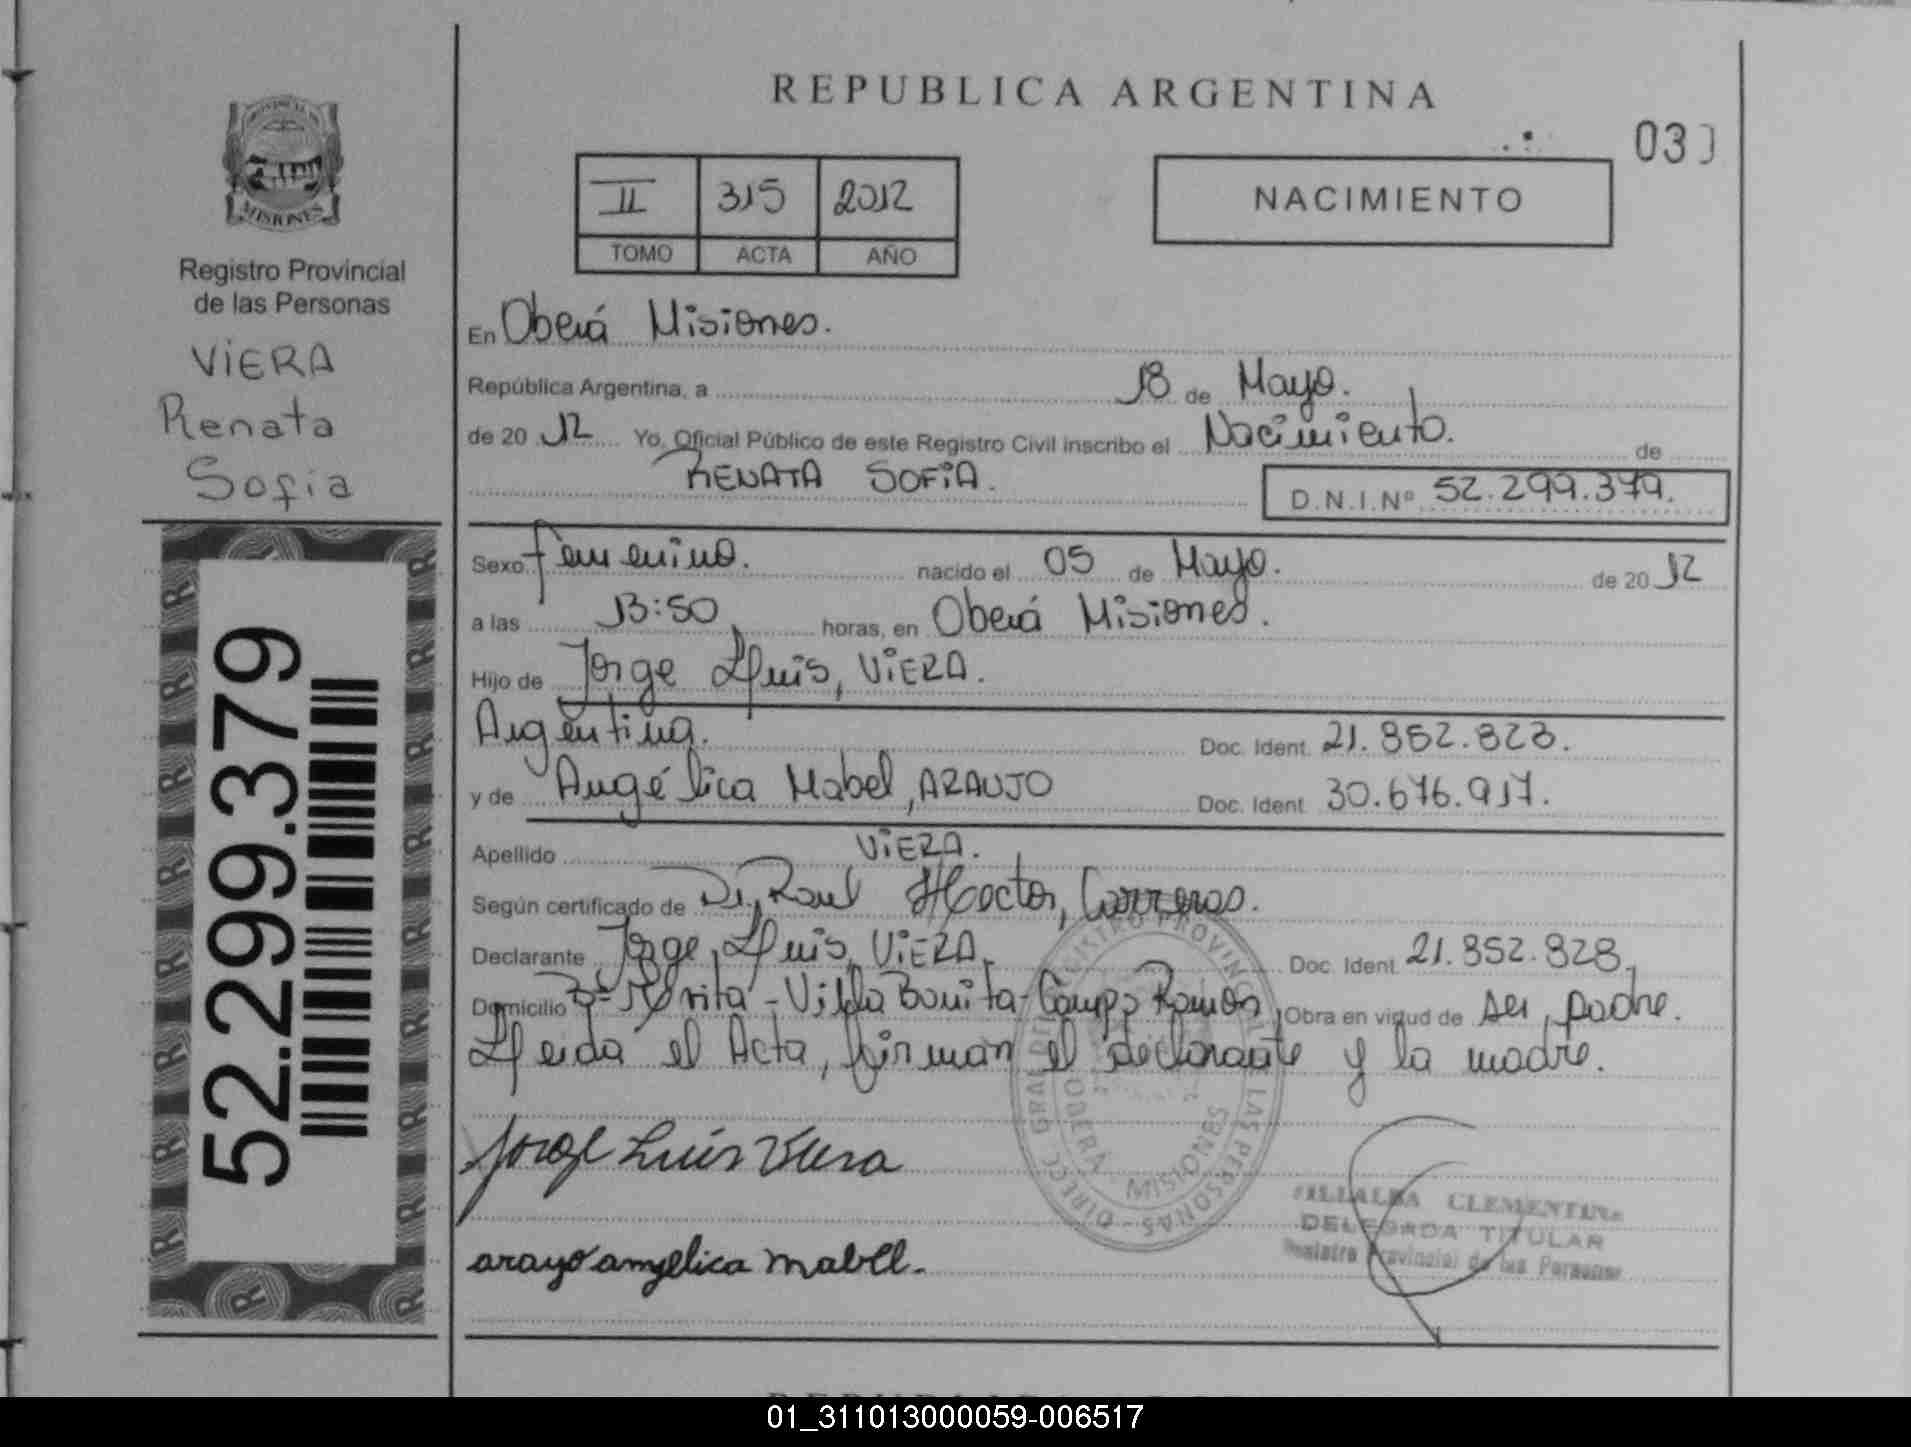 REPUBLICA ARGENTINA
03
MISIONES
Registro Provincial
de las Personas
VIERA
Renata
Sofia
II 315 2012
TOMO ACTA AÑO
NACIMIENTO
En Oberá Misiones.
República Argentina, a 18 de Mayo.
de 20 12 Yo, Oficial Público de este Registro Civil inscribo el Nacimiento. de
RENATA SOFIA.
D.N.I.Nº 52.299.379.
Sexo femenino. nacido el 05 de Mayo. de 20 12
a las 13:50 horas, en Oberá Misiones.
Hijo de Jorge Luis, VIERA.
Argentina. Doc. Ident. 21.852.828.
y de Angélica Mabel, ARAUJO Doc. Ident. 30.676.917.
Apellido VIERA.
Según certificado de Dr, Raul Hector, Carreras.
Declarante Jorge, Luis, VIERA. Doc. Ident. 21.852.828,
Domicilio Bº Villa Bonita - Campo Ramon, Obra en virtud de ser padre.
Leida el Acta, firman el declarante y la madre.
52.299.379
DIRECC GRAL DEL REGISTRO PROVINCIAL DE LAS PERSONAS
OBERA MISIONES
Jorge Luis Viera
VILLALBA CLEMENTINA
DELEGADA TITULAR
Registro Provincial de las Personas
arayo angelica mabel.
01_311013000059-006517